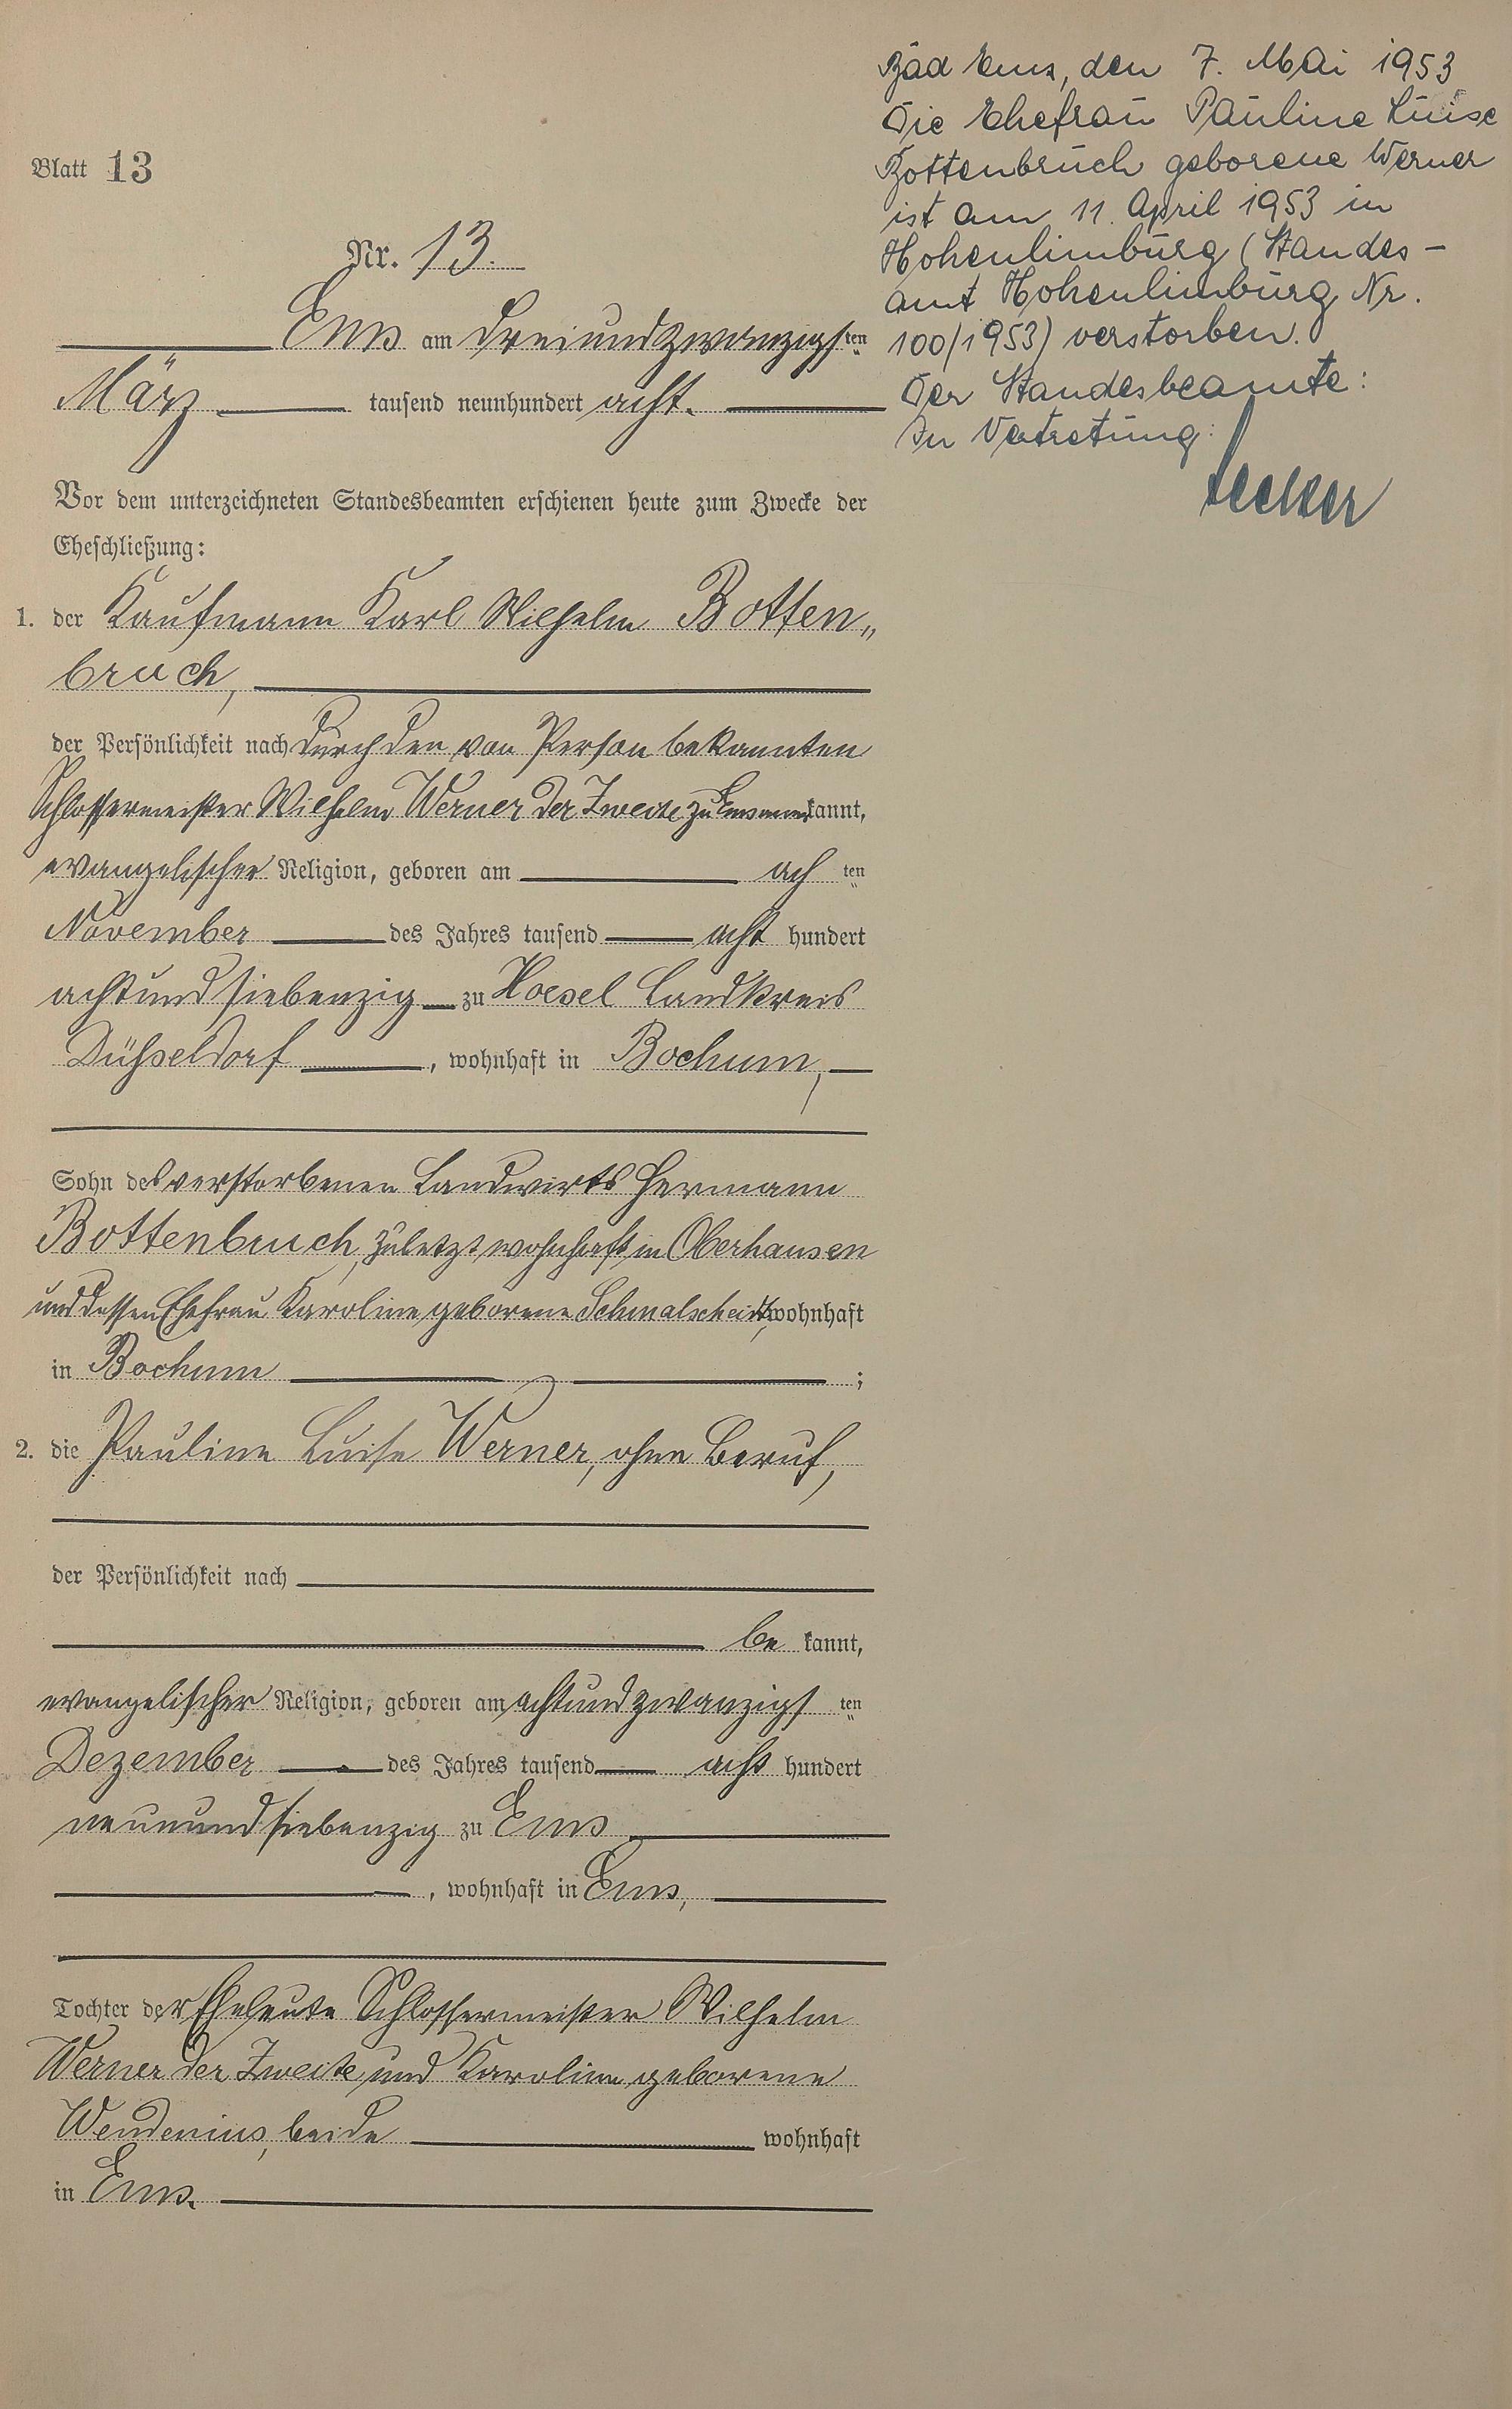 Blatt 13
Nr. 13.
Ems am dreiundzwanzigsten
März tausend neunhundert acht.
Vor dem unterzeichneten Standesbeamten erschienen heute zum Zwecke der
Eheschließung:
1. der Kaufmann Karl Wilhelm Botten„
bruch,
der Persönlichkeit nach durch den von Person bekannten
Schlossermeister Wilhelm Werner der Zweite zu Ems anerkannt,
evangelischer Religion, geboren am achten
November des Jahres tausend acht hundert
achtundsiebenzig zu Hoesel Landkreis
Düsseldorf, wohnhaft in Bochum,
Sohn des verstorbenen Landwirts Hermann
Bottenbruch, zuletzt wohnhaft in Oberhausen
und dessen Ehefrau Karoline geborene Schmalscheidt, wohnhaft
in Bochum;
2. die Pauline Luise Werner, ohne Beruf,
der Persönlichkeit nach
be kannt,
evangelischer Religion, geboren am achtundzwanzigsten
Dezember des Jahres tausend acht hundert
neunundsiebenzig zu Ems
, wohnhaft in Ems,
Tochter der Eheleute Schlossermeister Wilhelm
Werner der Zweite und Karoline geborene
Wendenius, beide wohnhaft
in Ems.
Bad Ems, den 7. Mai 1953
Die Ehefrau Pauline Luise
Bottenbruch geborene Werner
ist am 11. April 1953 in
Hohenlimburg (Standes-
amt Hohenlimburg Nr.
100/1953) verstorben.
Der Standesbeamte:
In Vertretung: